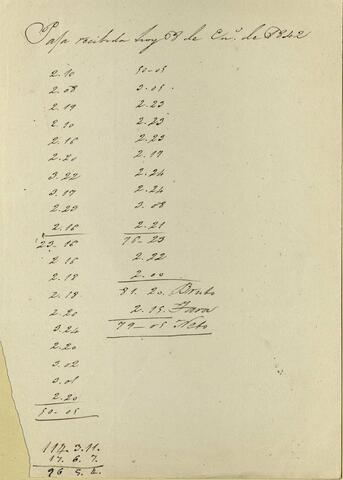 Pasa recibida hoy 8 de En.º de 1842
2. 10
2. 08
2. 19
2. 10
2. 16
2. 20
3. 22
3. 17
2. 23
2. 16
23. 16
2. 16
2. 18
2. 18
2. 20
3. 24
2. 20
3. 02
3. 01
2. 20
50-05
114. 3. 11.
17. 6. 7.
96 5. 4.
50-05
3. 05
2. 23
2. 23
2. 23
2. 19
2. 24
2. 24
3. 08
2. 21
76-23
2. 22
2. 00
81. 20. Bruto
2. 15. Tara
79-05 Neto